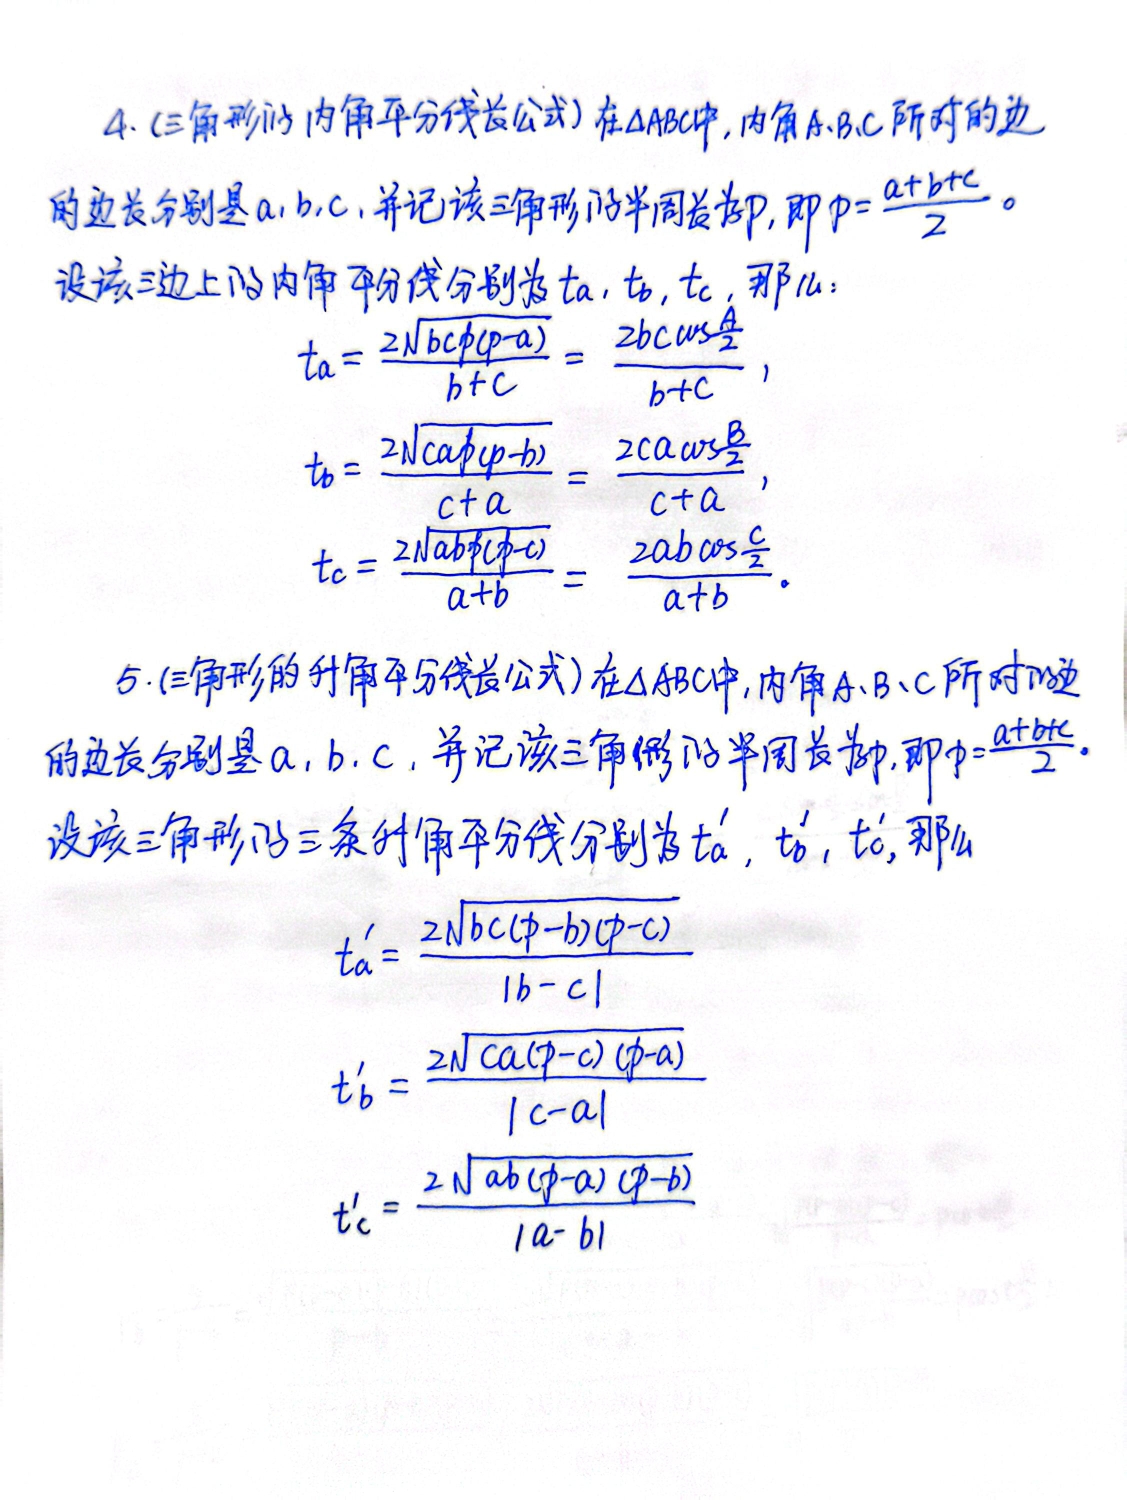 4.(三角形的内角平分线长公式)在△ABC中,内角A、B、C所对的边
的边长分别是a,b,c,并记该三角形的半周长为p,即p=\frac{a+b+c}{2}。
设该三边上的内角平分线分别为t_a,t_b,t_c,那么:
t_a=\frac{2\sqrt{bcp(p-a)}}{b+c}=\frac{2bc\cos\frac{A}{2}}{b+c},
t_b=\frac{2\sqrt{cap(p-b)}}{c+a}=\frac{2ca\cos\frac{B}{2}}{c+a},
t_c=\frac{2\sqrt{abp(p-c)}}{a+b}=\frac{2ab\cos\frac{C}{2}}{a+b}.
5.(三角形的外角平分线长公式)在△ABC中,内角A、B、C所对的边
的边长分别是a,b,c,并记该三角形的半周长为p,即p=\frac{a+b+c}{2}.
设该三角形的三条外角平分线分别为t_a',t_b',t_c',那么
t_a'=\frac{2\sqrt{bc(p-b)(p-c)}}{|b-c|}
t_b'=\frac{2\sqrt{ca(p-c)(p-a)}}{|c-a|}
t_c'=\frac{2\sqrt{ab(p-a)(p-b)}}{|a-b|}